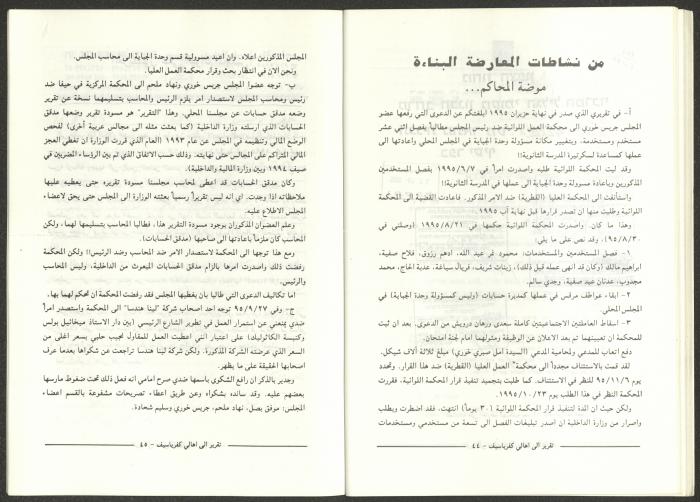 من نشاطات المعارضة البناءة
موضة المحاكم...
أ- في تقريري الذي صدر في نهاية حزيران ١٩٩٥ ابلغتكم عن الدعوى التي رفعها عضو
المجلس جريس خوري الى محكمة العمل اللوائية ضد رئيس المجلس مطالباً بفصل اثني عشر
مستخدم ومستخدمة، وبتغيير مكانة مسؤولة وحدة الجباية في المجلس المحلي واعادتها الى
عملها كمساعدة لسكرتيرة المدرسة الثانوية!!
وقد لبت المحكمة طلبه واصدرت امراً في ١٩٩٥/٦/٧ بفصل المستخدمين
المذكورين وباعادة مسؤولة وحدة الجباية الى عملها في المدرسة الثانوية!!
واستأنفت الى المحكمة العليا (القطرية) ضد الامر المذكور. فاعادت القضية الى المحكمة
اللوائية وطلبت منها ان تصدر قرارها قبل نهاية آب ١٩٩٥.
وهذا ما كان. واصدرت المحكمة اللوائية حكمها في ١٩٩٥/٨/٢١ (وصلني في
٩٥/٨/٣٠). وقد نص على ما يلي:
١- فصل المستخدمين والمستخدمات: محمود نمر عبد الله، ادهم رزوق، فلاح صفية،
ابراهيم مالك (وكان قد انهى عمله قبل ذلك)، زينات شريف، فريال سباعة، عدية الحاج، محمد
مجدوب، عدنان عبد صفية، وجدي سالم.
٢- ابقاء عواطف مرقس في عملها كمديرة حسابات (وليس كمسؤولة وحدة الجباية) في
المجلس المحلي.
٣- اسقاط العاملتين الاجتماعيتين كاملة سعدى ورهان درويش من الدعوى. بعد ان ثبت
للمحكمة ان تعيينهما تم بعد الاعلان عن الوظيفة ومثولهما امام لجنة امتحان.
دفع اتعاب للمدعي ولمحامية المدعي (السيدة امل صبري خوري) مبلغ ثلاثة آلاف شيكل.
لقد قمت بالاستئناف مجدداً الى محكمة العمل العليا (القطرية) ضد هذا القرار. وتحدد
يوم ٩٥/١١/٦ للنظر في الاستئناف. كما طلبت بتجميد تنفيذ قرار المحكمة اللوائية. فقررت
المحكمة النظر في هذا الطلب يوم ١٩٩٥/١٠/٢٣.
ولكن حيث ان المدة لتنفيذ قرار المحكمة اللوائية (٣٠ يوماً) انتهت. فقد اضطرت وبطلب
واصرار من وزارة الداخلية ان اصدر تبليغات الفصل الى تسعة من مستخدمي ومستخدمات
تقرير الى اهالي كفرياسيف - ٤٤
المجلس المذكورين اعلاه. وان اعيد مسؤولية قسم وحدة الجباية الى محاسب المجلس.
ونحن الان في انتظار بحث وقرار محكمة العمل العليا.
ب- توجه عضوا المجلس جريس خوري ونهاد ملحم الى المحكمة المركزية في حيفا ضد
رئيس ومحاسب المجلس لاستصدار امر يلزم الرئيس والمحاسب بتسليمهما نسخة عن تقرير
وضعه مدقق حسابات عن مجلسنا المحلي. وهذا "التقرير" هو مسودة تقرير وضعها مدقق
الحسابات الذي ارسلته وزارة الداخلية (كما بعثت مثله الى مجالس عربية أخرى) لفحص
الوضع المالي وتنظيمه في المجلس عن عام ١٩٩٣ (العام الذي قررت الوزارة ان تغطي العجز
المالي المتراكم على المجالس حتى نهايته. وذلك حسب الاتفاق الذي تم بين الرؤساء المضربين في
صيف ١٩٩٤ وبين وزارة المالية والداخلية).
وكان مدقق الحسابات قد اعطى لمحاسب مجلسنا مسودة تقريره حتى يعطيه عليها
ملاحظاته اذا وجدت. اي انه ليس تقريراً رسمياً بعثته الوزارة الى المجلس حتى يحق لاعضاء
المجلس الاطلاع عليه.
وعلم العضوان المذكوران بوجود مسودة التقرير هذا، فطالبا المحاسب بتسليمها لهما، ولكن
المحاسب كان ملزماً باعادتها الى صاحبها (مدقق الحسابات).
ومع هذا توجها الى المحكمة لاستصدار الامر ضد المحاسب وضد الرئيس!! ولكن المحكمة
رفضت ذلك واصدرت امرها بالزام مدقق الحسابات المبعوث من الداخلية، وليس المحاسب
وليس الرئيس.
اما تكاليف الدعوى التي طالبا بان يغطيها المجلس فقد رفضت المحكمة ان تحكم لهما بها.
ج- وفي ٩٥/٩/٢٧ توجه احد اصحاب شركة "لينا هندسا" الى المحكمة واستصدر امراً
ضدي يمنعني من استمرار العمل في تطوير الشارع الرئيسي (بين دار الاستاذ ميخائيل بولس
وكنيسة الكاثوليك) على اعتبار انني اعطيت العمل للمقاول نجيب حلبي بسعر اغلى من
السعر الذي عرضته الشركة المذكورة. ولكن شركة لينا هندسا تراجعت عن شكواها بعدما عرف
اصحابها الحقيقة على ما يظهر.
وجدير بالذكر ان رافع الشكوى باسمها ضدي صرح امامي انه فعل ذلك تحت ضغوط مارسها
بعضهم عليه. وقد سانده بشكواه وعن طريق اعطاء تصريحات مشفوعة بالقسم اعضاء
المجلس: موفق بصل، نهاد ملحم، جريس خوري وسليم شحادة.
تقرير الى اهالي كفرياسيف - ٤٥